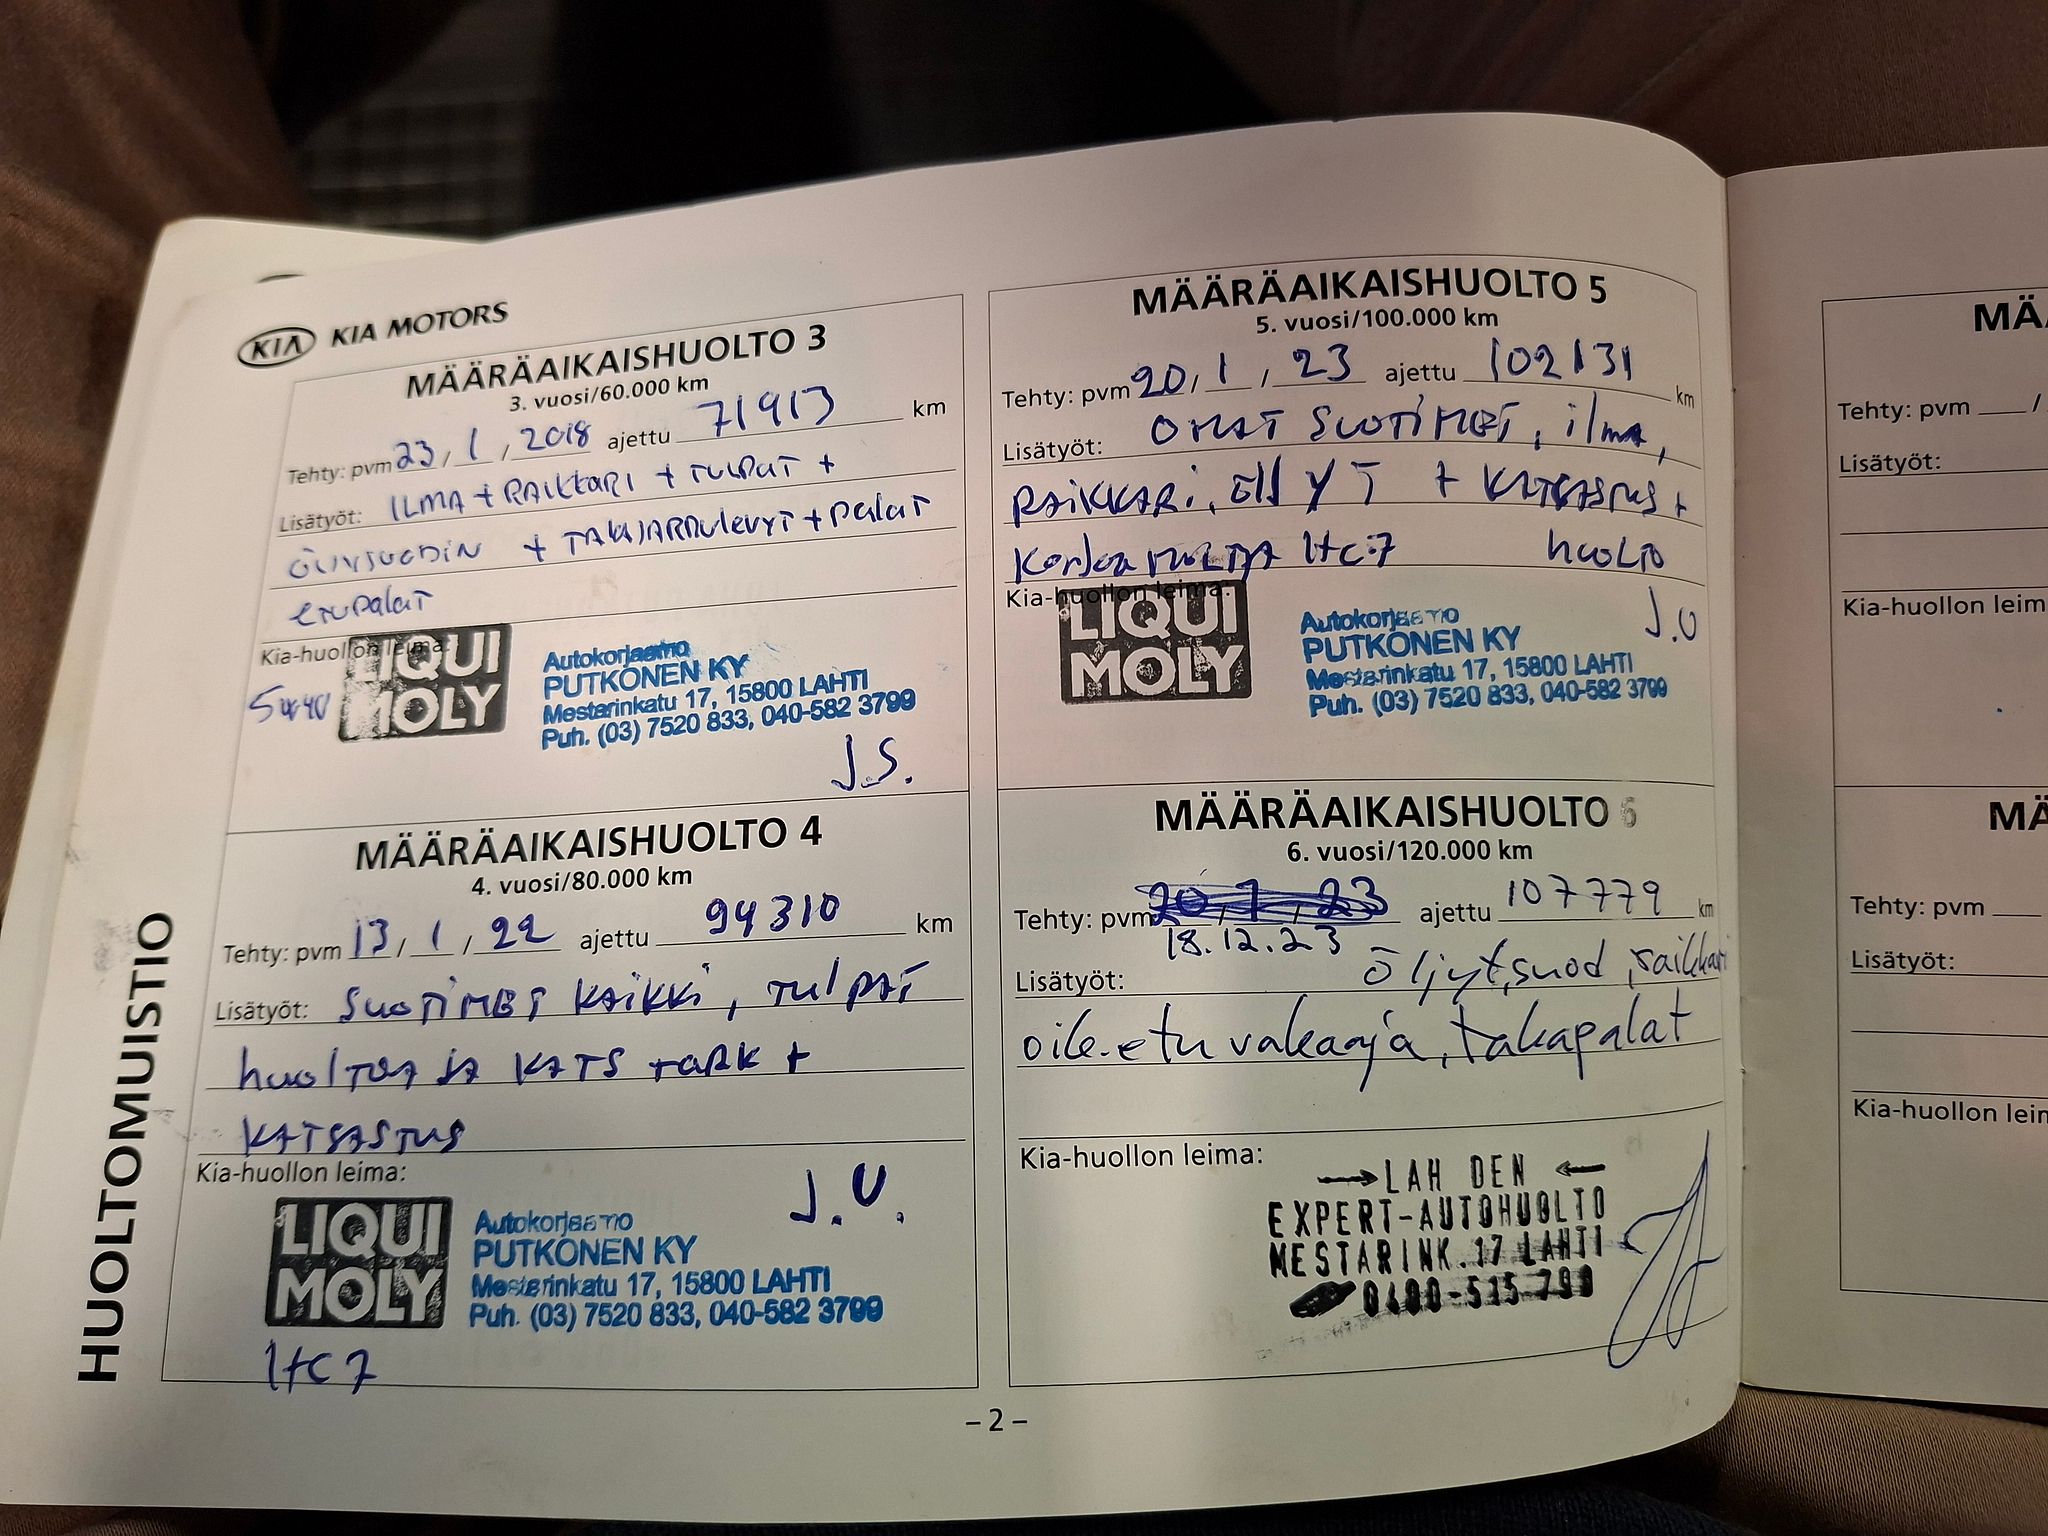 KIA KIA MOTORS
HUOLTOMUISTIO
MÄÄRÄAIKAISHUOLTO 3
3. vuosi/60.000 km
Tehty: pvm 23 / 1 / 2018 ajettu 71913 km
Lisätyöt: ILMA + RAIKKARI + TULPAT +
+ TAKAJARRULEVYT + PALAT
ETUPALAT
Kia-huollon leima:
5W40
LIQUI
MOLY
Autokorjaamo
PUTKONEN KY
Mestarinkatu 17, 15800 LAHTI
Puh. (03) 7520 833, 040-582 3799
J.S.
MÄÄRÄAIKAISHUOLTO 4
4. vuosi/80.000 km
Tehty: pvm 13 / 1 / 22 ajettu 94310 km
Lisätyöt: SUOTIMET KAIKKI, TULPAT
huoltoa ja KATS TARK +
KATSASTUS
Kia-huollon leima:
J.U.
LIQUI
MOLY
Autokorjaamo
PUTKONEN KY
Mestarinkatu 17, 15800 LAHTI
Puh. (03) 7520 833, 040-582 3799
HC7
MÄÄRÄAIKAISHUOLTO 5
5. vuosi/100.000 km
Tehty: pvm 20 / 1 / 23 ajettu 102131 km
Lisätyöt: OMAT SUOTIMET, ilma,
RAIKKARI, ÖLJYT + KATSASTUS +
HC7 huolto
Kia-huollon leima:
J.U
LIQUI
MOLY
Autokorjaamo
PUTKONEN KY
Mestarinkatu 17, 15800 LAHTI
Puh. (03) 7520 833, 040-582 3799
MÄÄRÄAIKAISHUOLTO 6
6. vuosi/120.000 km
Tehty: pvm 20 / 1 / 23 ajettu 107779 km
18.12.23
Lisätyöt: öljyt, suod, raikkari
oik. etu vakaaja, takapalat
Kia-huollon leima:
LAH DEN
EXPERT-AUTOHUOLTO
MESTARINK. 17 LAHTI
0400-515 799
– 2 –
MÄ
Tehty: pvm /
Lisätyöt:
Kia-huollon leim
MÄ
Tehty: pvm
Lisätyöt:
Kia-huollon leim